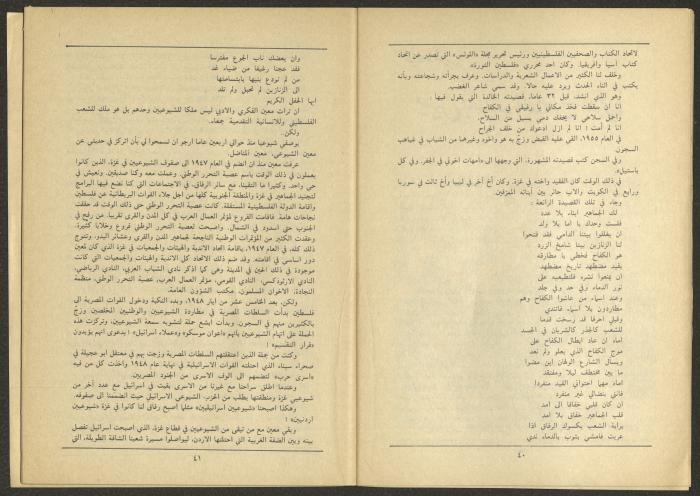 لاتحاد الكتاب والصحفيين الفلسطينيين ورئيس تحرير مجلة «اللوتس» التي تصدر عن اتحاد
كتاب آسيا وافريقيا. وكان احد محرري «فلسطين الثورة».
وخلف لنا الكثير من الاعمال الشعرية والدراسات. وعرف بجرأته وشجاعته وبأنه
يكتب في اثناء الحدث ويرد عليه حالا. وقد سمي شاعر الغضب.
وهو الذي انشد، قبل ٣٢ عاما، قصيدته الخالدة التي يقول فيها
انا ان سقطت فخذ مكاني يا رفيقي في الكفاح
واحمل سلاحي لا يخفك دمي يسيل من السلاح.
انا لم أمت! انا لم ازل ادعوك من خلف الجراح
في العام ١٩٥٥، القي عليه القبض وزج به هو واخوه وغيرهما من الشباب في غياهب
السجون
وفي السجن كتب قصيدته المشهورة، التي وجهها الى «امهات اخوتي في الجفر وفي كل
باستيل»
في ذلك الوقت كان الفقيد واخته في غزة. وكان أخ آخر في ليبيا وأخ ثالث في سوريا
ورابع في الكويت والاب حائر بين أبنائه الممزقين.
وجاء في تلك القصيدة الرائعة:
لك الجماهير ابناء بلا عدد
فلست وحدك يا اما بلا ولد
ان يغلقوا بيتنا الدامي فقد فتحوا
لنا الزنازين بيتا شامخ الزرد
هو الكفاح فخطي يا مطارقه
بقيد مضطهد تاريخ مضطهد
ان يمنعوا نشره فلتطبعيه على
نور الدماء وفي حد وفي جلد
وعند اسماء من عاشوا الكفاح وهم
مطاردون بلا أسماء فاتئدي
وقبلي احرفا قد رسخت قدما
للشعب كالجذر كالشريان في الجسد
اماه ان عاد ابطال الكفاح على
موج الكفاح الذي يعلو ولم نعد
ويسأل الشارع الولهان اين مضوا
ما بين مختطف ليلا ومفتقد
اماه مهما احتواني القيد منفردا
فانني بنضالي غير منفرد
ان كان قلبي خفاقا الى امد
قلب الجماهير خفاق بلا امد
براية الشعب يكسوك الرفاق اذا
عريت فامشي بثوب بالدماء ندي
٤٠
وان يعضك ناب الجوع مفترسا
فقد عجنا رغيفا من ضياء غد
من لم تودع بنيها بابتسامتها
الى الزنازين لم تحبل ولم تلد
ايها الحفل الكريم
ان تراث معين الفكري والادبي ليس ملكا للشيوعيين وحدهم بل هو ملك للشعب
الفلسطيني وللانسانية التقدمية جمعاء.
ولكن..
بوصفي شيوعيا منذ حوالي اربعين عاما ارجو ان تسمحوا لي بأن اتركز في حديثي عن
معين الشيوعي، معين المناضل.
عرفت معين منذ ان انضم في العام ١٩٤٧ الى صفوف الشيوعيين في غزة، الذين كانوا
يعملون في ذلك الوقت باسم عصبة التحرر الوطني. وعملت معه وكنا صديقين، ونعيش في
حي واحد. وكثيرا ما التقينا، مع سائر الرفاق، في الاجتماعات التي كنا نضع فيها البرامج
لتجنيد الجماهير في غزة والمنطقة الجنوبية كلها من اجل جلاء القوات البريطانية عن فلسطين
واقامة الدولة الفلسطينية المستقلة. كانت عصبة التحرر الوطني حتى ذلك الوقت قد حققت
نجاحات هامة. فاقامت الفروع لمؤتمر العمال العرب في كل المدن والقرى تقريبا، من رفح في
الجنوب حتى اسدود في الشمال. واصبحت لعصبة التحرر الوطني فروع وخلايا كثيرة.
وعقدت الكثير من المؤتمرات الوطنية الناجحة لجماهير المدن والقرى وعشائر البدو. وتتوج
ذلك كله، في العام ١٩٤٧، باقامة اتحاد الاندية والهيئات والجمعيات في غزة الذي كان لمعين
دور اساسي في اقامته. وقد ضم ذلك الاتحاد كل الاندية والهيئات والجمعيات التي كانت
موجودة في ذلك الحين في المدينة وهي كما اذكر نادي الشباب العربي، النادي الرياضي،
النادي الارثوذكسي، النادي القومي، مؤتمر العمال العرب، عصبة التحرر الوطني، منظمة
النجادة، الاخوان المسلمون، مكتب الشؤون العامة.
ولكن، بعد الخامس عشر من ايار ١٩٤٨، وبدء النكبة ودخول القوات المصرية الى
فلسطين بدأت السلطات المصرية في مطاردة الشيوعيين والوطنيين المخلصين وزج
بالكثيرين منهم في السجون. وبدأت ابشع حملة لتشويه سمعة الشيوعيين، وتركزت هذه
الحملة على اتهام الشيوعيين بأنهم «اعوان موسكو» و«عملاء اسرائيل»! بدعوى انهم يؤيدون
«قرار التقسيم»!
وكنت من جملة الذين اعتقلتهم السلطات المصرية وزجت بهم في معتقل ابو عجيلة في
صحراء سيناء، الذي احتلته القوات الاسرائيلية في نهاية عام ١٩٤٨ واخذت كل من فيه
«اسرى حرب» لتضمهم الى الوف الاسرى من الجنود المصريين.
وعندما اطلق سراحنا مع غيرنا من الاسرى بقيت في اسرائيل مع عدد آخر من
شيوعيي غزة ومنطقتها بطلب من الحزب الشيوعي الاسرائيلي حيث انضممنا الى صفوفه.
وهكذا اصبحنا «شيوعيين اسرائيليين» مثلما اصبح رفاق لنا كانوا في غزة «شيوعيين
اردنيين»!
وبقي معين مع من تبقى من الشيوعيين في قطاع غزة، الذي اصبحت اسرائيل تفصل
بينه وبين الضفة الغربية التي احتلتها الاردن، ليواصلوا مسيرة شعبنا الشاقة الطويلة، التي
٤١